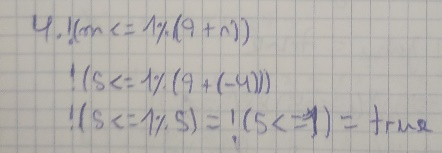 4. !(m <= 1%(9 + n))
!(5 <= 1%(9 + (-4)))
!(5 <= 1% 5) = !(5 <= 1) = true